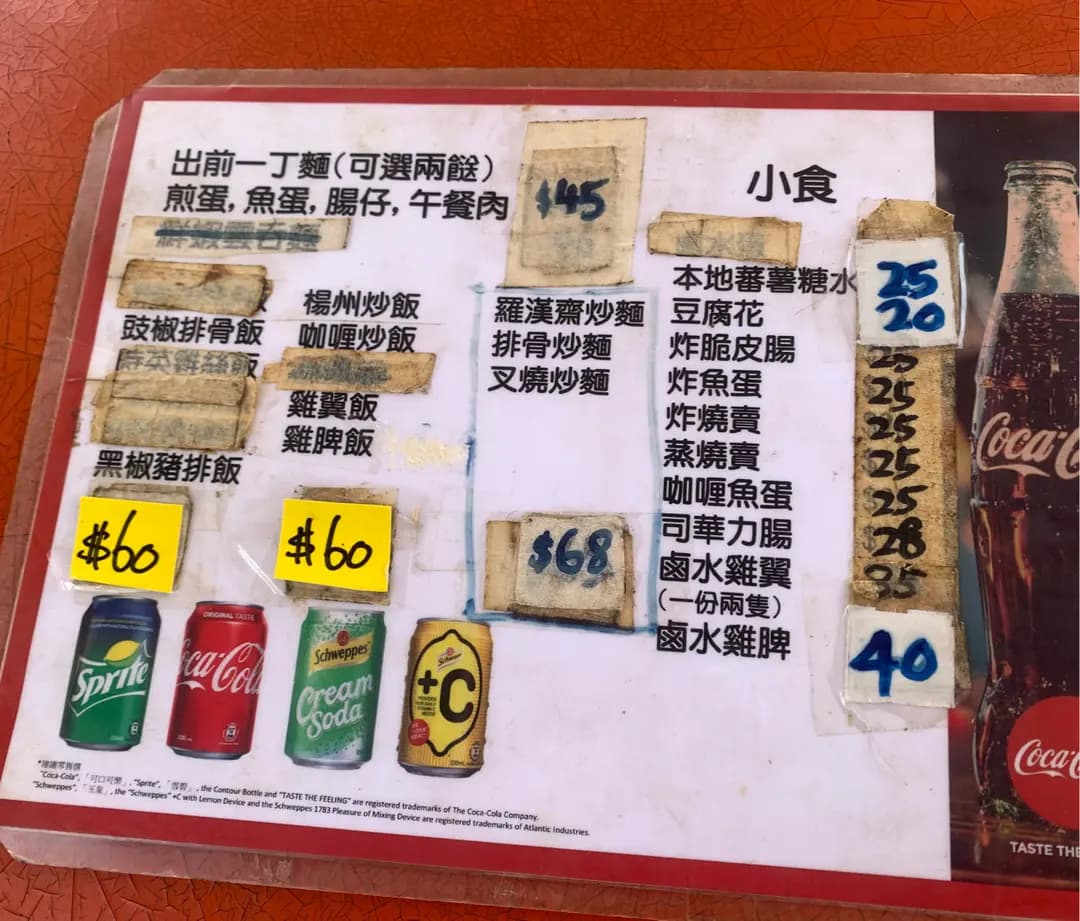 出前一丁麵(可選兩餸)
煎蛋, 魚蛋, 腸仔, 午餐肉
$45
豉椒排骨飯
黑椒豬排飯
$60
楊州炒飯
咖喱炒飯
雞翼飯
雞脾飯
$60
羅漢齋炒麵
排骨炒麵
叉燒炒麵
$68
小食
本地蕃薯糖水 25
豆腐花 20
炸脆皮腸 25
炸魚蛋 25
炸燒賣 25
蒸燒賣 25
咖喱魚蛋 25
司華力腸 28
鹵水雞翼 35
(一份兩隻)
鹵水雞脾 40
Sprite
ORIGINAL TASTE
Coca-Cola
Schweppes
Cream Soda
+C
Coca-C
Coca-C
TASTE THE
*建議零售價
"Coca-Cola", 「可口可樂」, "Sprite", 「雪碧」, the Contour Bottle and "TASTE THE FEELING" are registered trademarks of The Coca-Cola Company.
"Schweppes", 「玉泉」, the "Schweppes" +C with Lemon Device and the Schweppes 1783 Pleasure of Mixing Device are registered trademarks of Atlantic Industries.